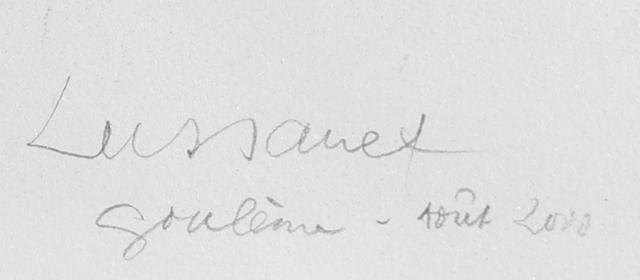 Lussanet
Goulème - Août 2000